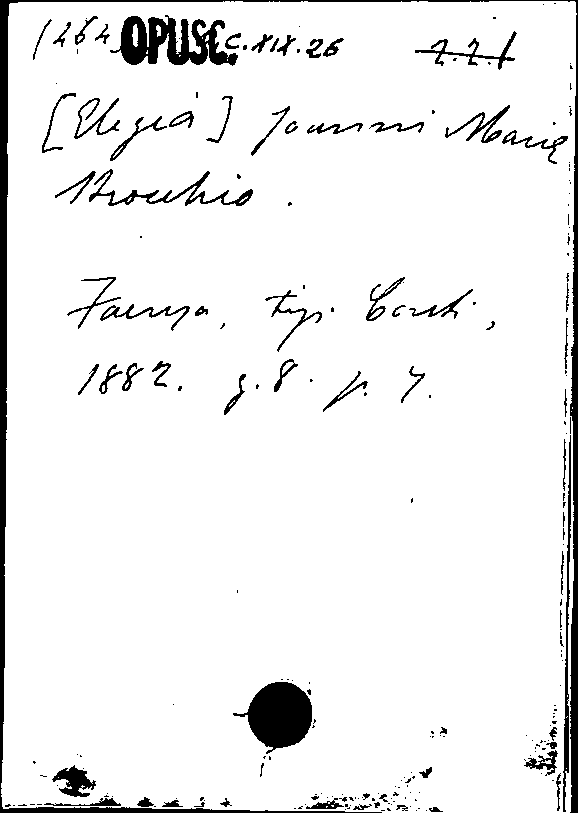 (264) OPUSC. C. XIX. 26 2.2.1
[Elegia] Joanni Mariae
Brocchio.
Faenza, tip. Conti,
1882. g. 8. p. 7.